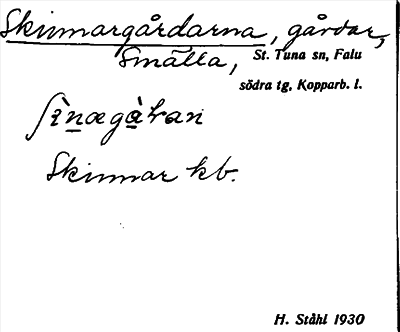 Skinnargårdarna, gårdar,
Smälla, St. Tuna sn, Falu
södra tg, Kopparb. l.
ʃìnægàʈan
Skinnar kb.
H. Ståhl 1930